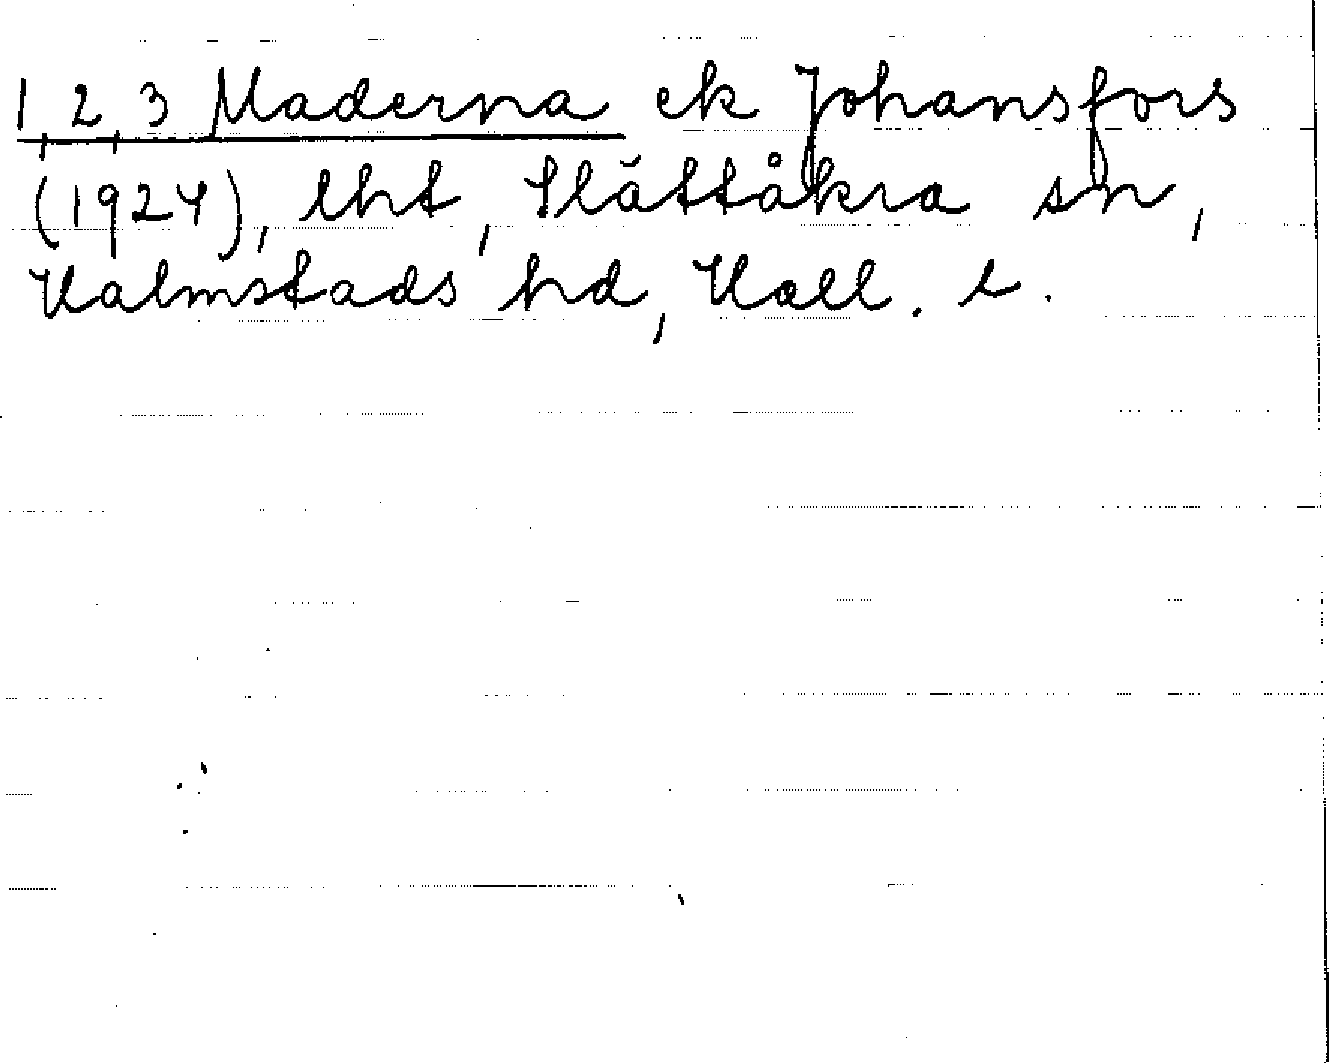 1, 2, 3 Maderna ek Johansfors
(1924), lht, Slättåkra sn,
Halmstads hd, Hall. l.